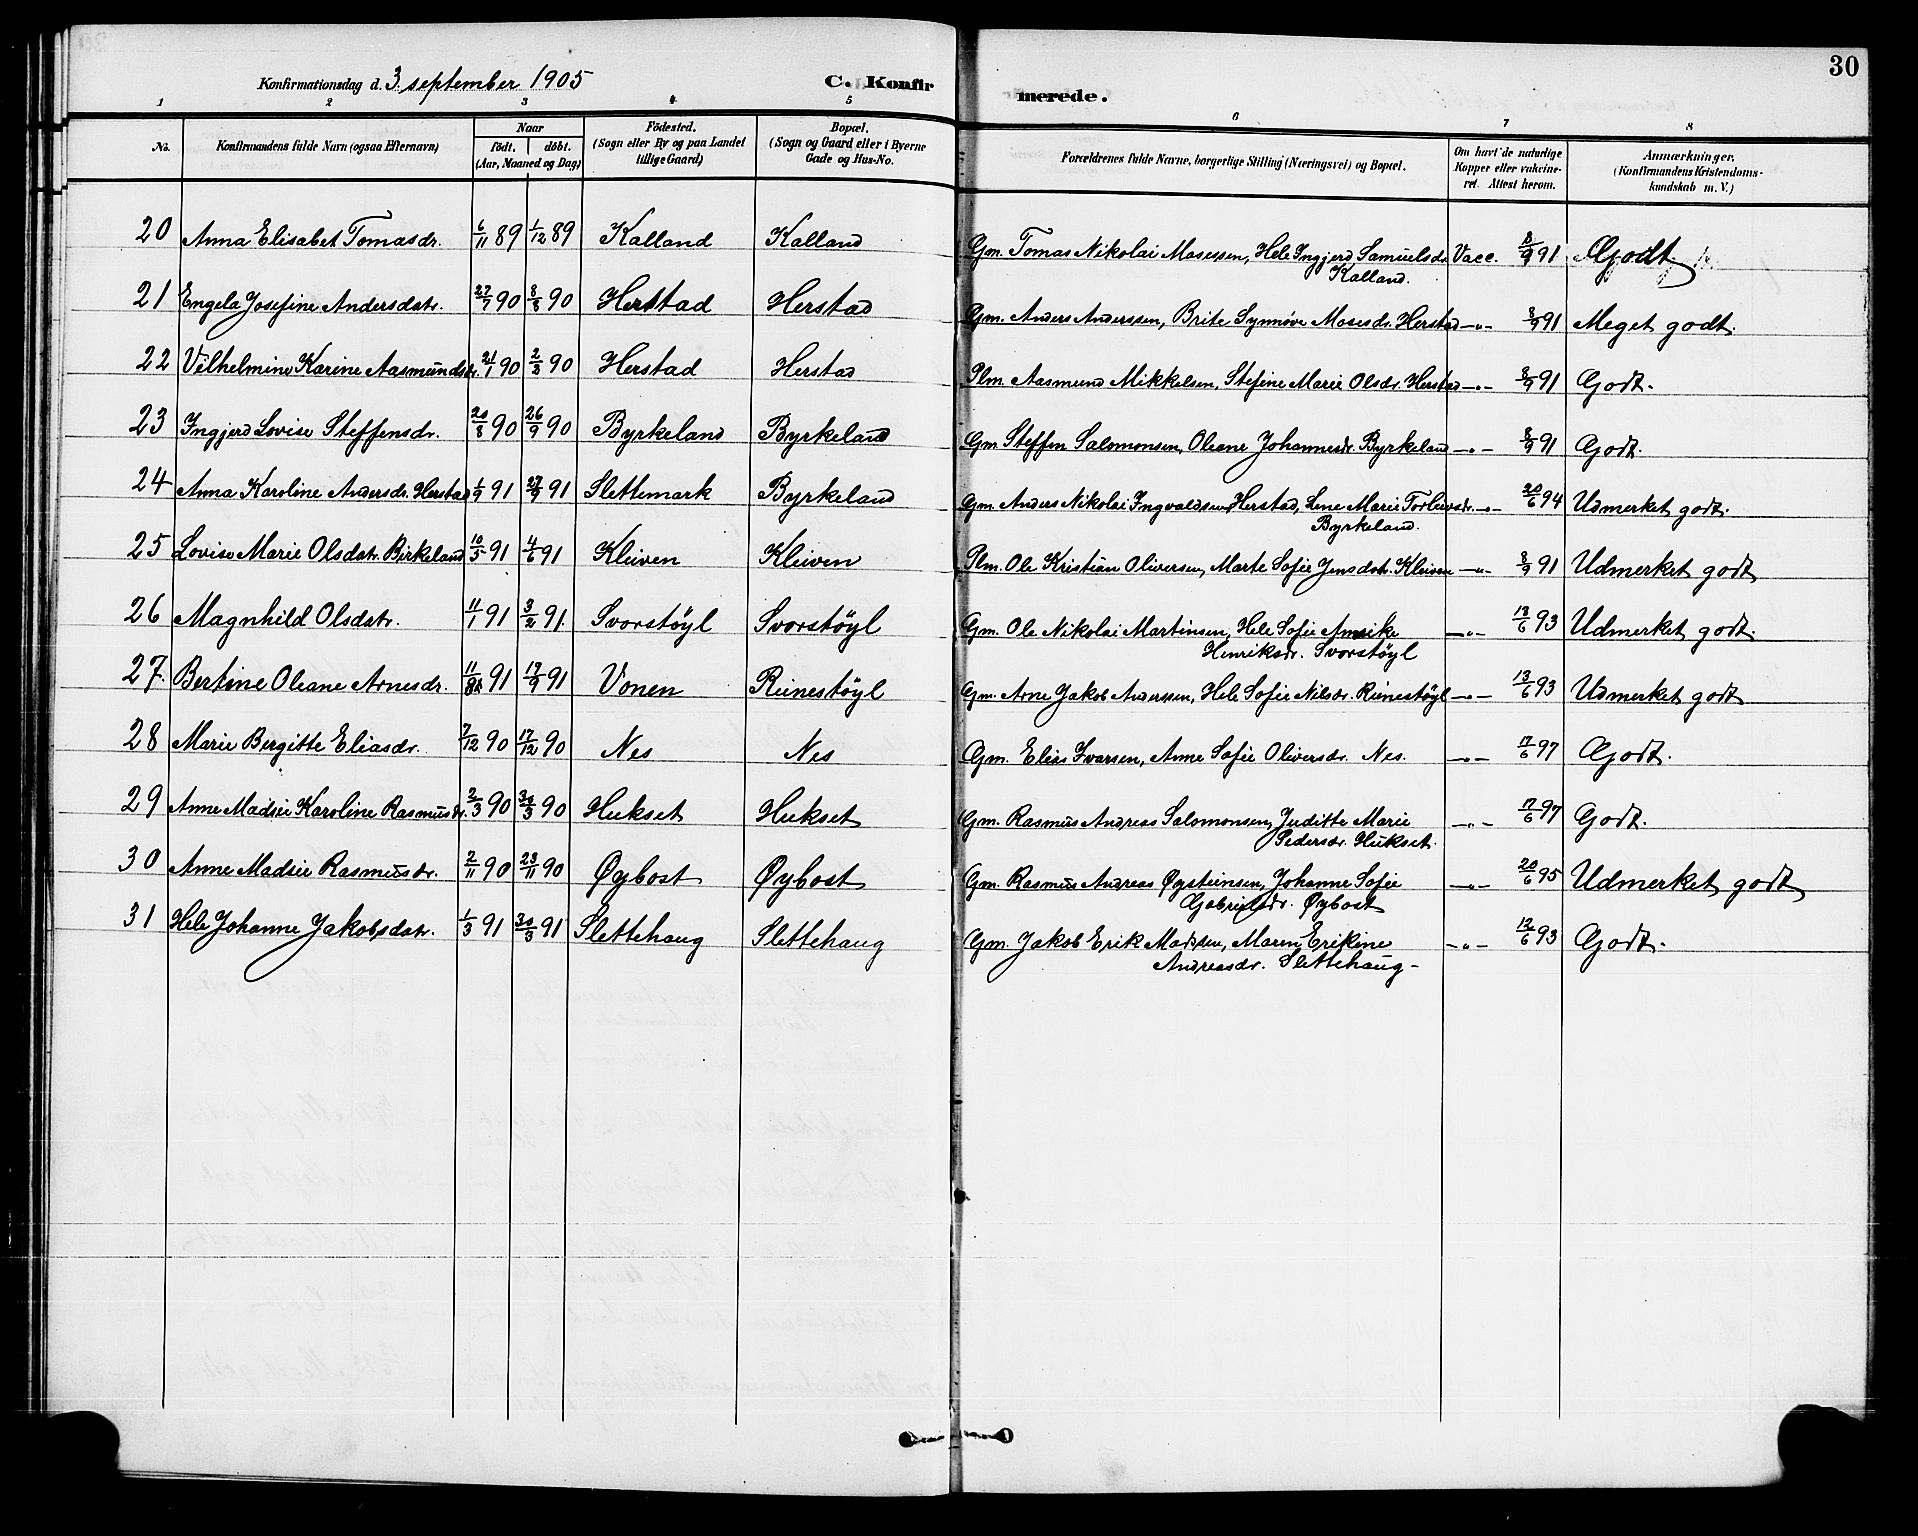 30
Konfirmationsdag d. 3. september 1905 C. Konfirmerede.
1 2 3 4 5 6 7 8
No. Konfirmandens fulde Navn (ogsaa Efternavn) Naar födt. döbt. (Aar, Maaned og Dag) Födested. (Sogn eller By og paa Landet tillige Gaard) Bopæl. (Sogn og Gaard eller i Byerne Gade og Hus-No. Forældrenes fulde Navne, borgerlige Stilling (Næringsvei) og Bopæl. Om havt de naturlige Kopper eller vakcineret. Attest herom. Anmærkninger. (Konfirmandens Kristendomskundskab m. V.)
20 Anna Elisabet Tomasdr. 6/11 89 1/12 89 Kalland Kalland Gm. Tomas Nikolai Mosessen, Hele Ingjerd Samuelsdr. Vacc. 8/9 91 Godt.
Kalland.
21 Engela Josefine Andersdatr. 27/7 90 8/8 90 Herstad Herstad Gm. Anders Anderssen, Brite Synnøve Mosesdr. Herstad —"— 8/9 91 Meget godt.
22 Vilhelmine Karine Aasmundsdr. 21/1 90 2/3 90 Herstad Herstad Plm. Aasmund Mikkelsen, Stefine Marie Olsdr. Herstad —"— 8/9 91 Godt.
23 Ingjerd Lovise Steffensdr. 20/8 90 26/9 90 Byrkeland Byrkeland Gm. Steffen Salomonsen, Oleane Johannesdr. Byrkeland —"— 8/9 91 Godt.
24 Anna Karoline Andersdr. Herstad 1/9 91 27/9 91 Slettemark Byrkeland Gm. Anders Nikolai Ingvaldsen Herstad, Lene Marie Torleivsdr. —"— 20/6 94 Udmerket godt.
Byrkeland.
25 Lovise Marie Olsdatr. Birkeland 10/5 91 4/6 91 Kleiven Kleiven Plm. Ole Kristian Oliversen, Marte Sofie Jensdatr. Kleiven —"— 8/9 91 Udmerket godt
26 Magnhild Olsdatr. 11/1 91 3/2 91. Svorstöyl Svorstöyl Gm. Ole Nikolai Martinsen, Hele Sofie —"— 13/6 93 Udmerket godt.
Henriksdr. Svorstöyl
27. Bertine Oleane Arnesdr. 91 17/9 91 Vonen Reinestöyl Gm. Arne Jakob Anderssen, Hele Sofie Nilsdr. Reinestöyl —"— 13/6 93 Udmerket godt
28 Marie Bergitte Eliasdr. 7/12 90 17/12 90 Nes Nes Gm. Elias Ivarsen, Anne Sofie Oliversdr. Nes. —"— 17/6 97 Godt.
29 Anne Madsie Karoline Rasmusdr. 2/3 90 30/3 90 Hukset Hukset Gm. Rasmus Andreas Salomonsen, Juditte Marie —"— 17/6 97 Godt.
Pedersdr. Hukset.
30 Anne Madsie Rasmusdr. 2/11 90 23/11 90 Øybost Øybost Gm. Rasmus Andreas Øysteinsen, Johanne Sofie —"— 20/6 95 Udmerket godt
Gabrielsdr. Øybost
31 Hele Johanne Jakobsdatr. 1/3 91 30/3 91 Slettehaug Slettehaug Gm. Jakob Erik Madssen, Maren Erikine —"— 12/6 93 Godt.
Andreasdr. Slettehaug-